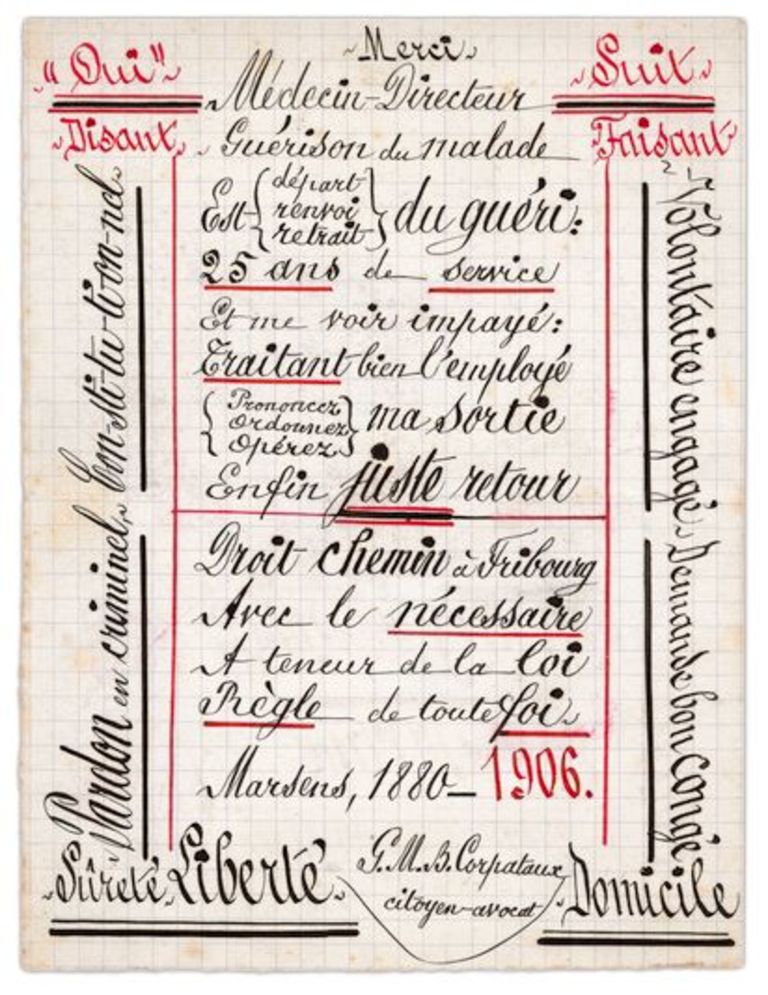 ~Merci~
"Oui"~
Médecin-Directeur
~Suit~
~Disant~
~Guérison du malade
~Faisant~
Est { départ
renvoi
retrait } du guéri:
25 ans de service
Et me voir impayé:
Traitant bien l'employé
{ Prononcez
Ordonnez
Opérez } ma sortie
Enfin juste retour
Droit chemin à Fribourg
Avec le nécessaire
A teneur de la loi
Règle de toute foi~
Marsens, 1880–1906.
~Pardon en criminel~ Con-sti-tu-ti-on-nel~
~Volontaire engagé~ Demande bon congé
~Sûreté~ Liberté~
G.M.B. Corpataux
citoyen-avocat
~Domicile